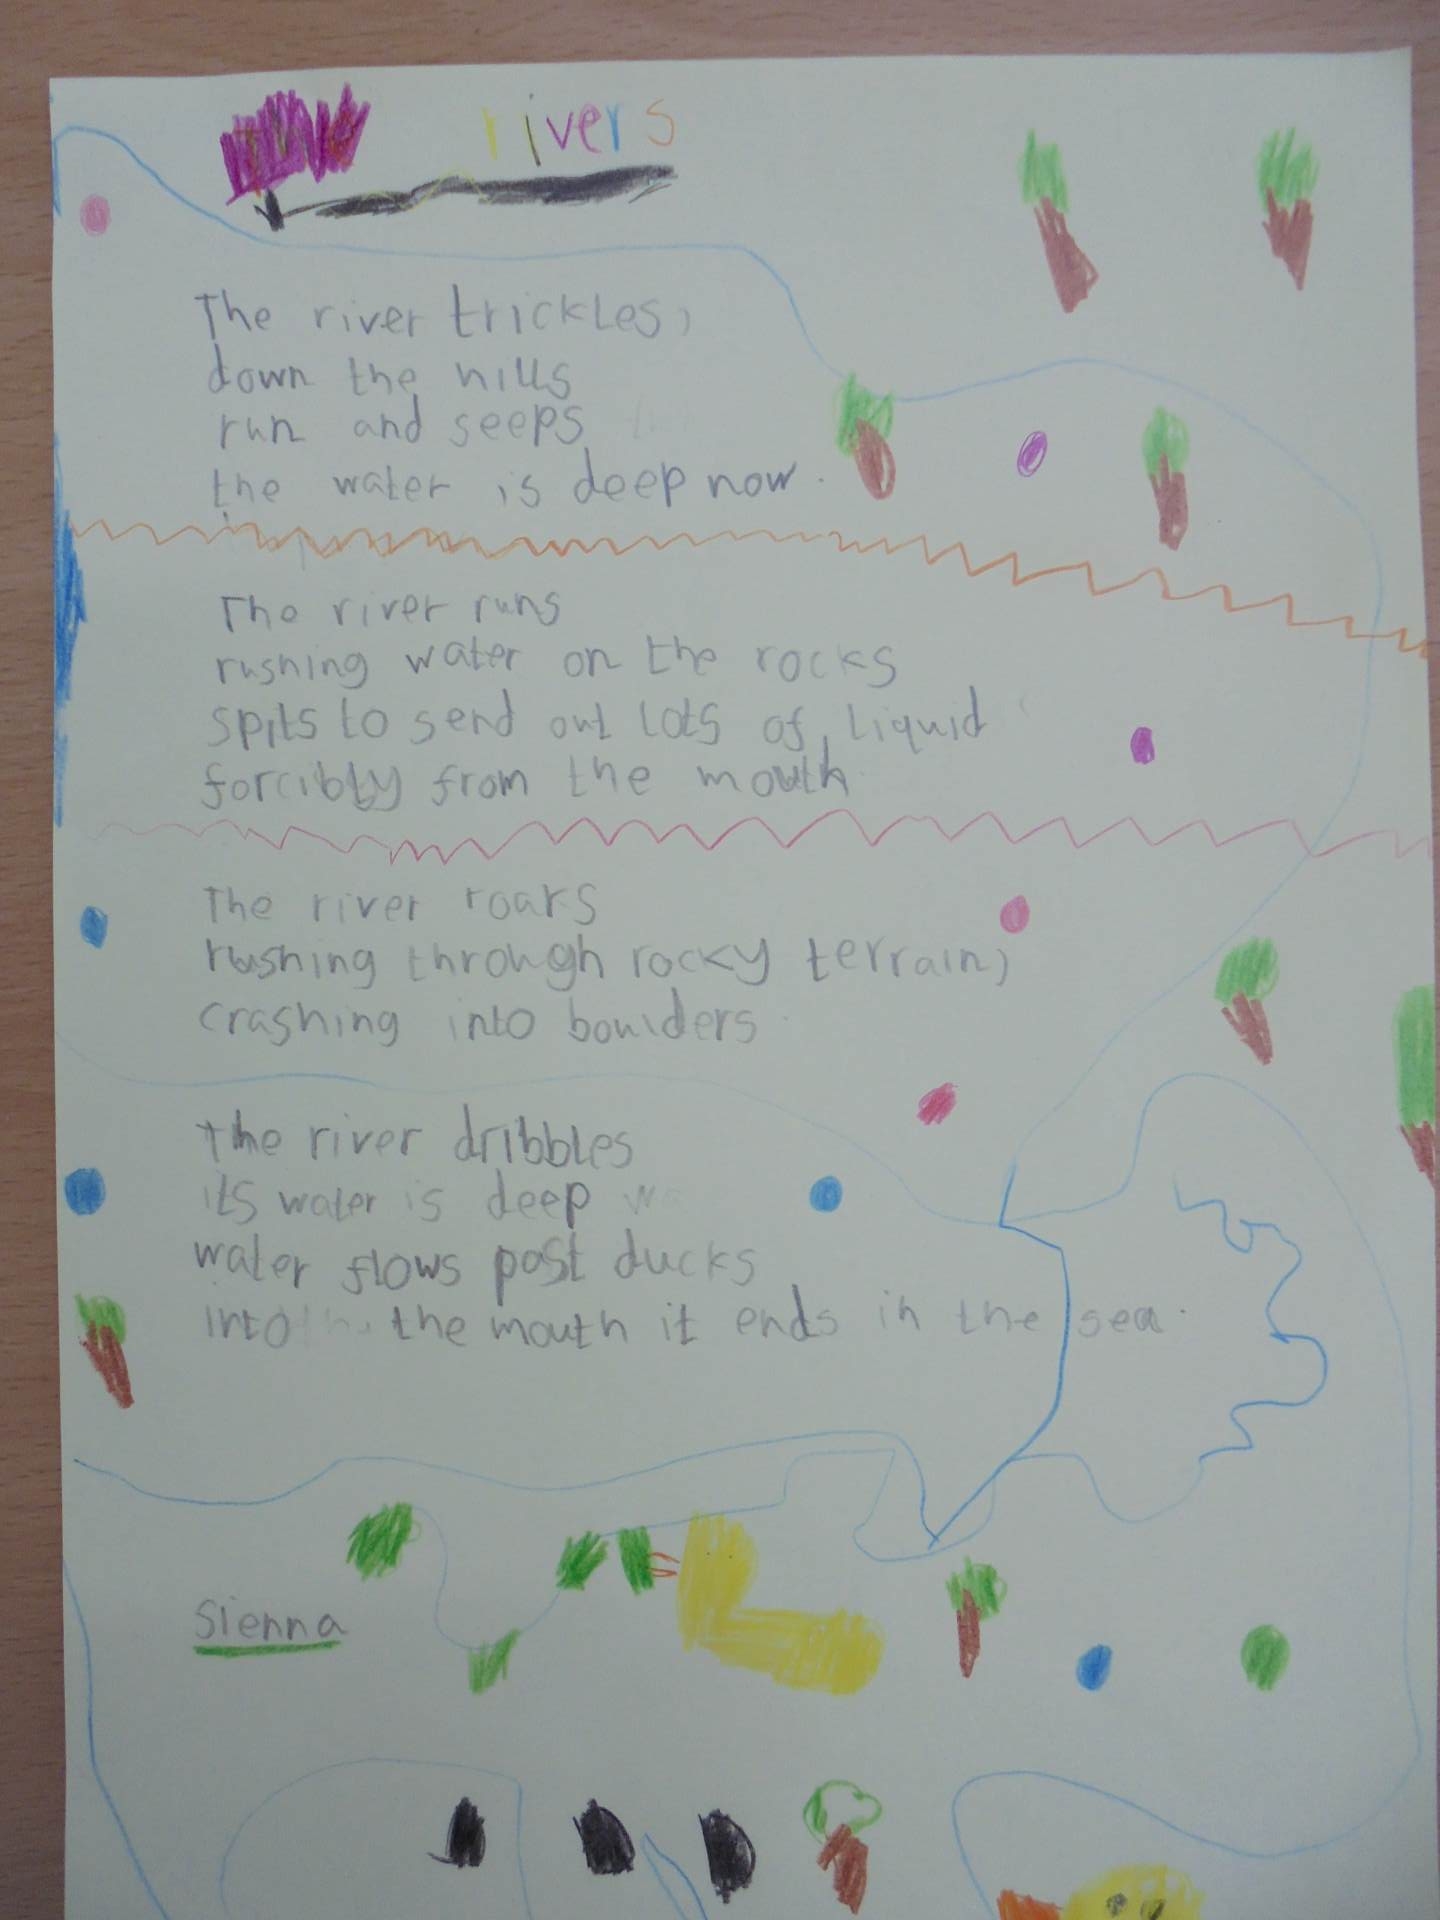 rivers
The river trickles,
down the hills
run and seeps
the water is deep now.
The river runs
rushing water on the rocks
spits to send out lots of liquid
forcibly from the mouth.
The river roars
rushing through rocky terrain,
crashing into boulders.
the river dribbles
its water is deep
water flows past ducks
into the mouth it ends in the sea.
Sienna